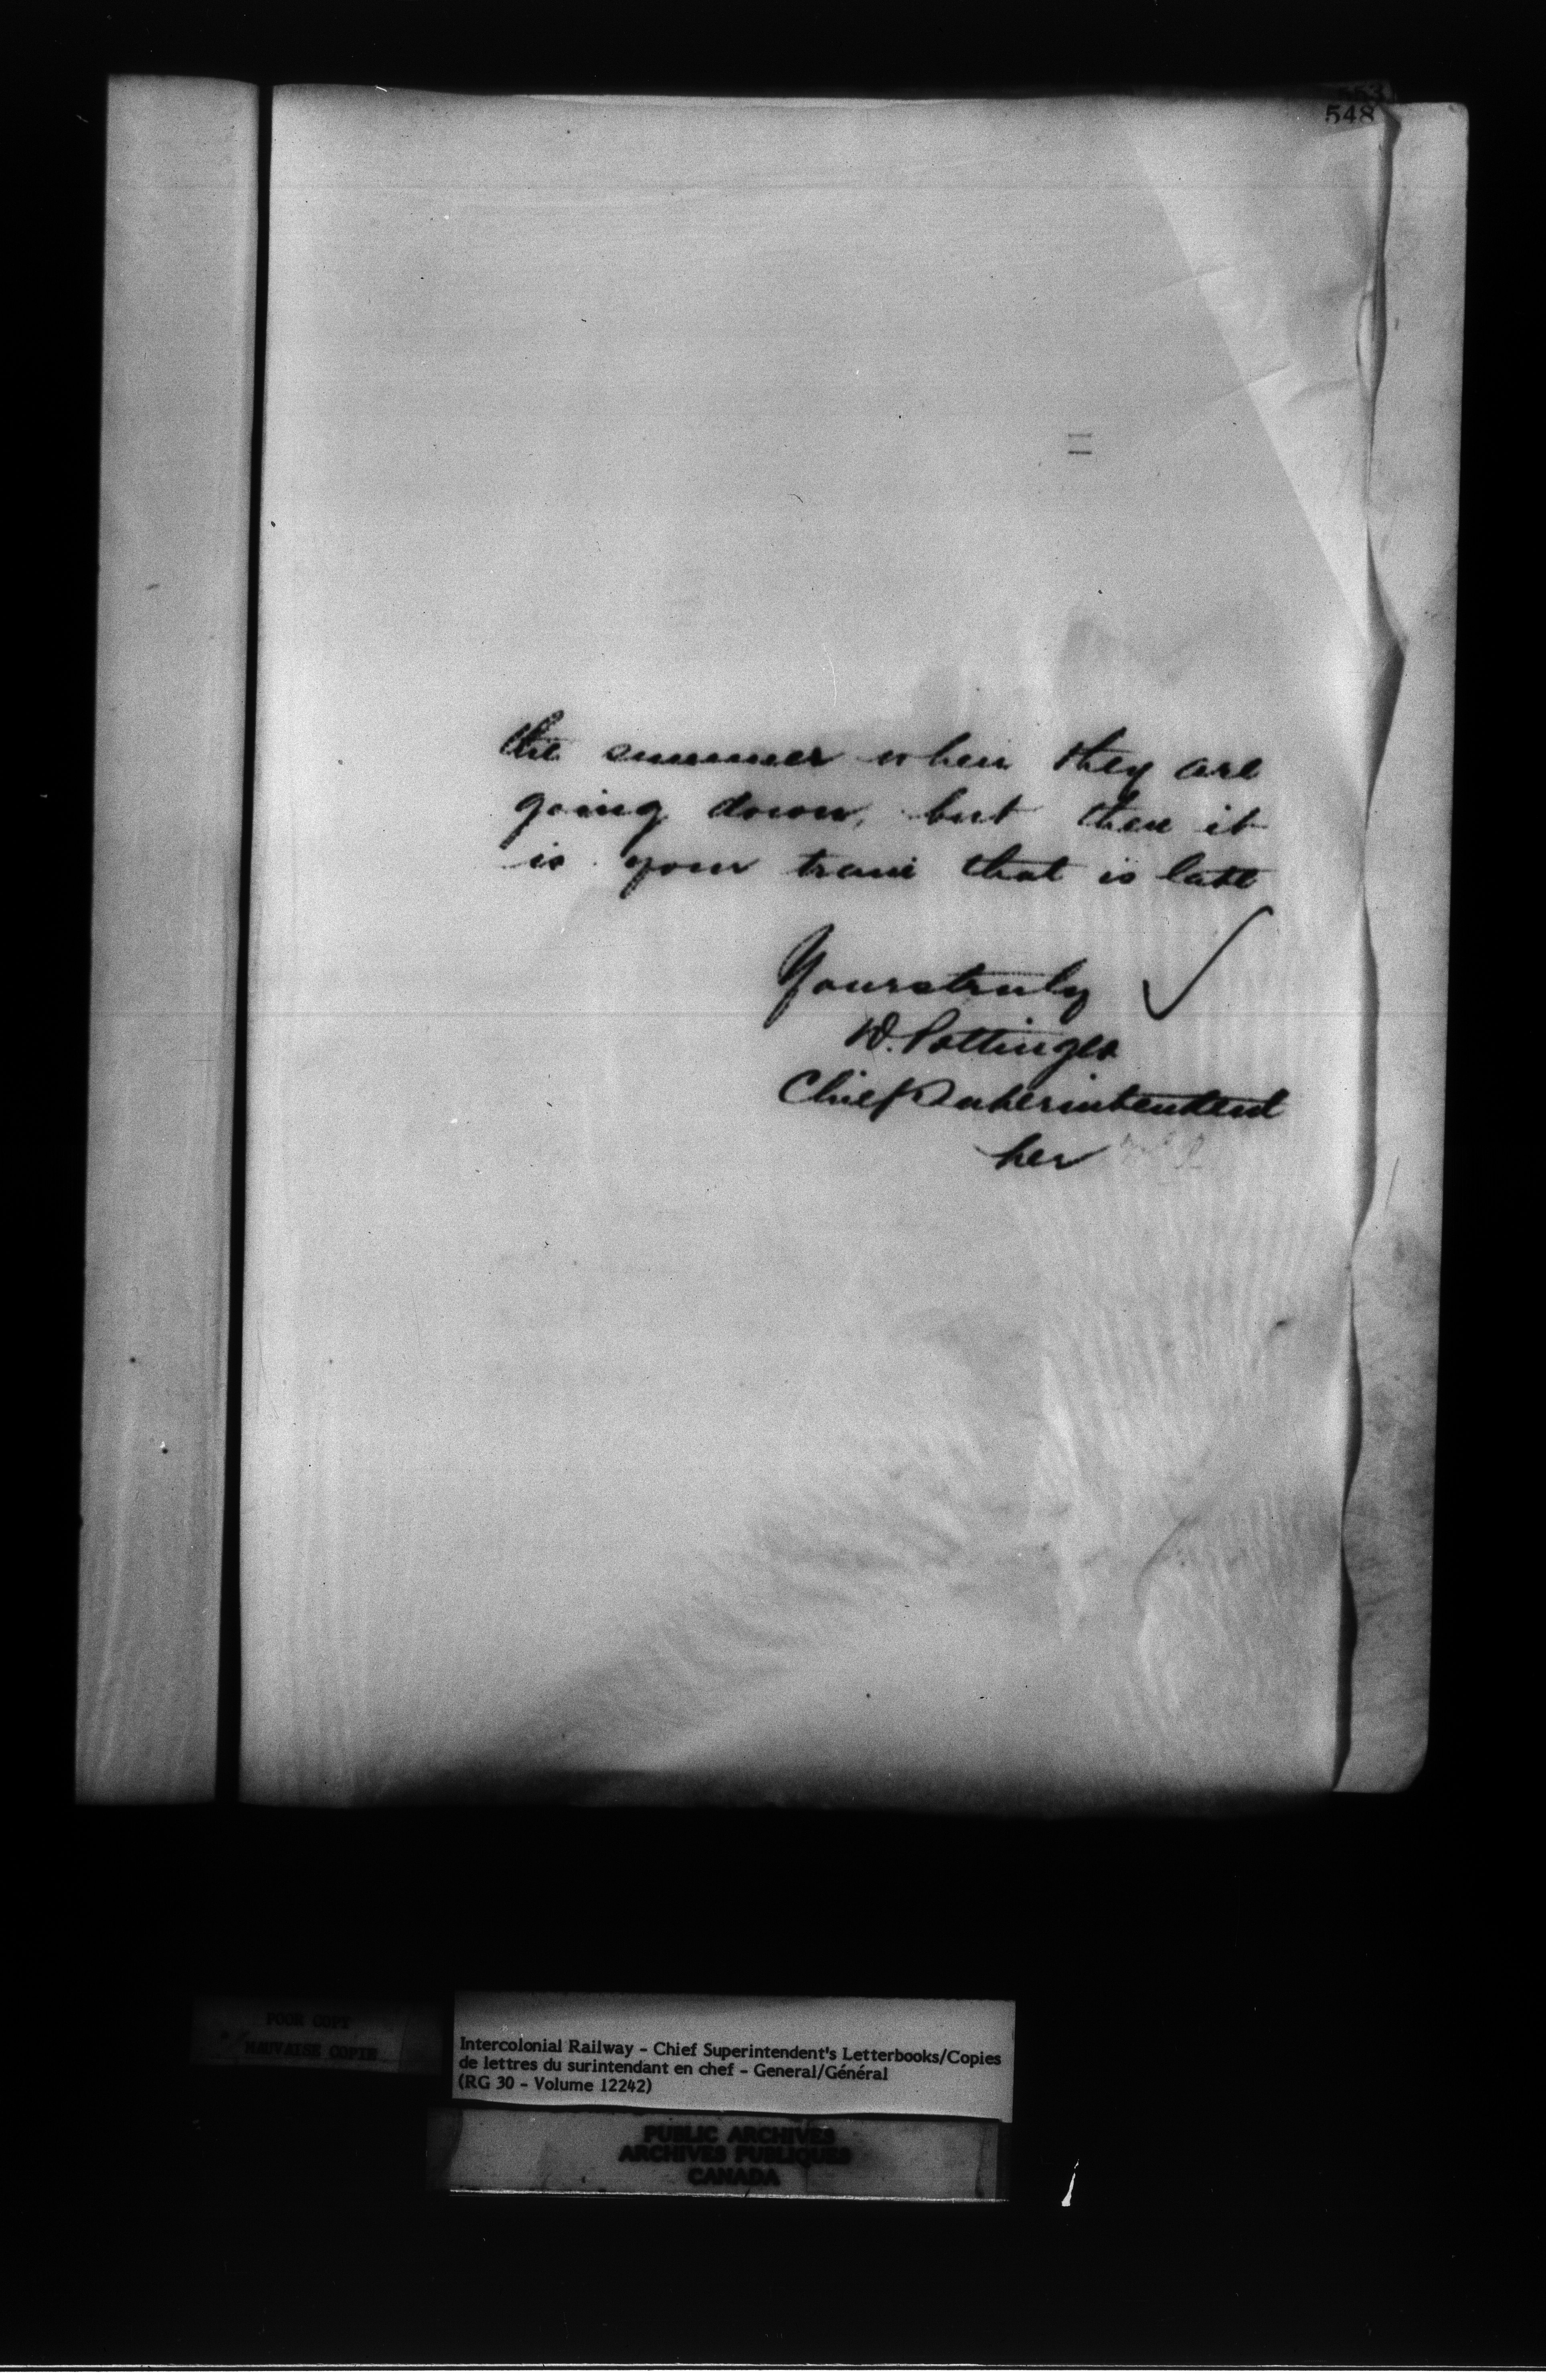 553
548
the summer when they are
going down, but then it
is your train that is late
Yours truly
D. Pottinger
Chief Superintendent
per
POOR COPY
MAUVAISE COPIE
Intercolonial Railway - Chief Superintendent's Letterbooks/Copies
de lettres du surintendant en chef - General/Général
(RG 30 - Volume 12242)
PUBLIC ARCHIVES
ARCHIVES PUBLIQUES
CANADA